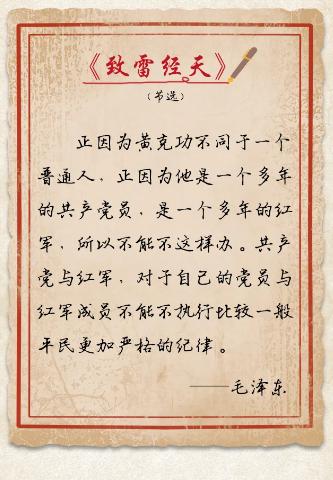 《致雷经天》
（节选）
正因为黄克功不同于一个
普通人，正因为他是一个多年
的共产党员，是一个多年的红
军，所以不能不这样办。共产
党与红军，对于自己的党员与
红军成员不能不执行比较一般
平民更加严格的纪律。
——毛泽东